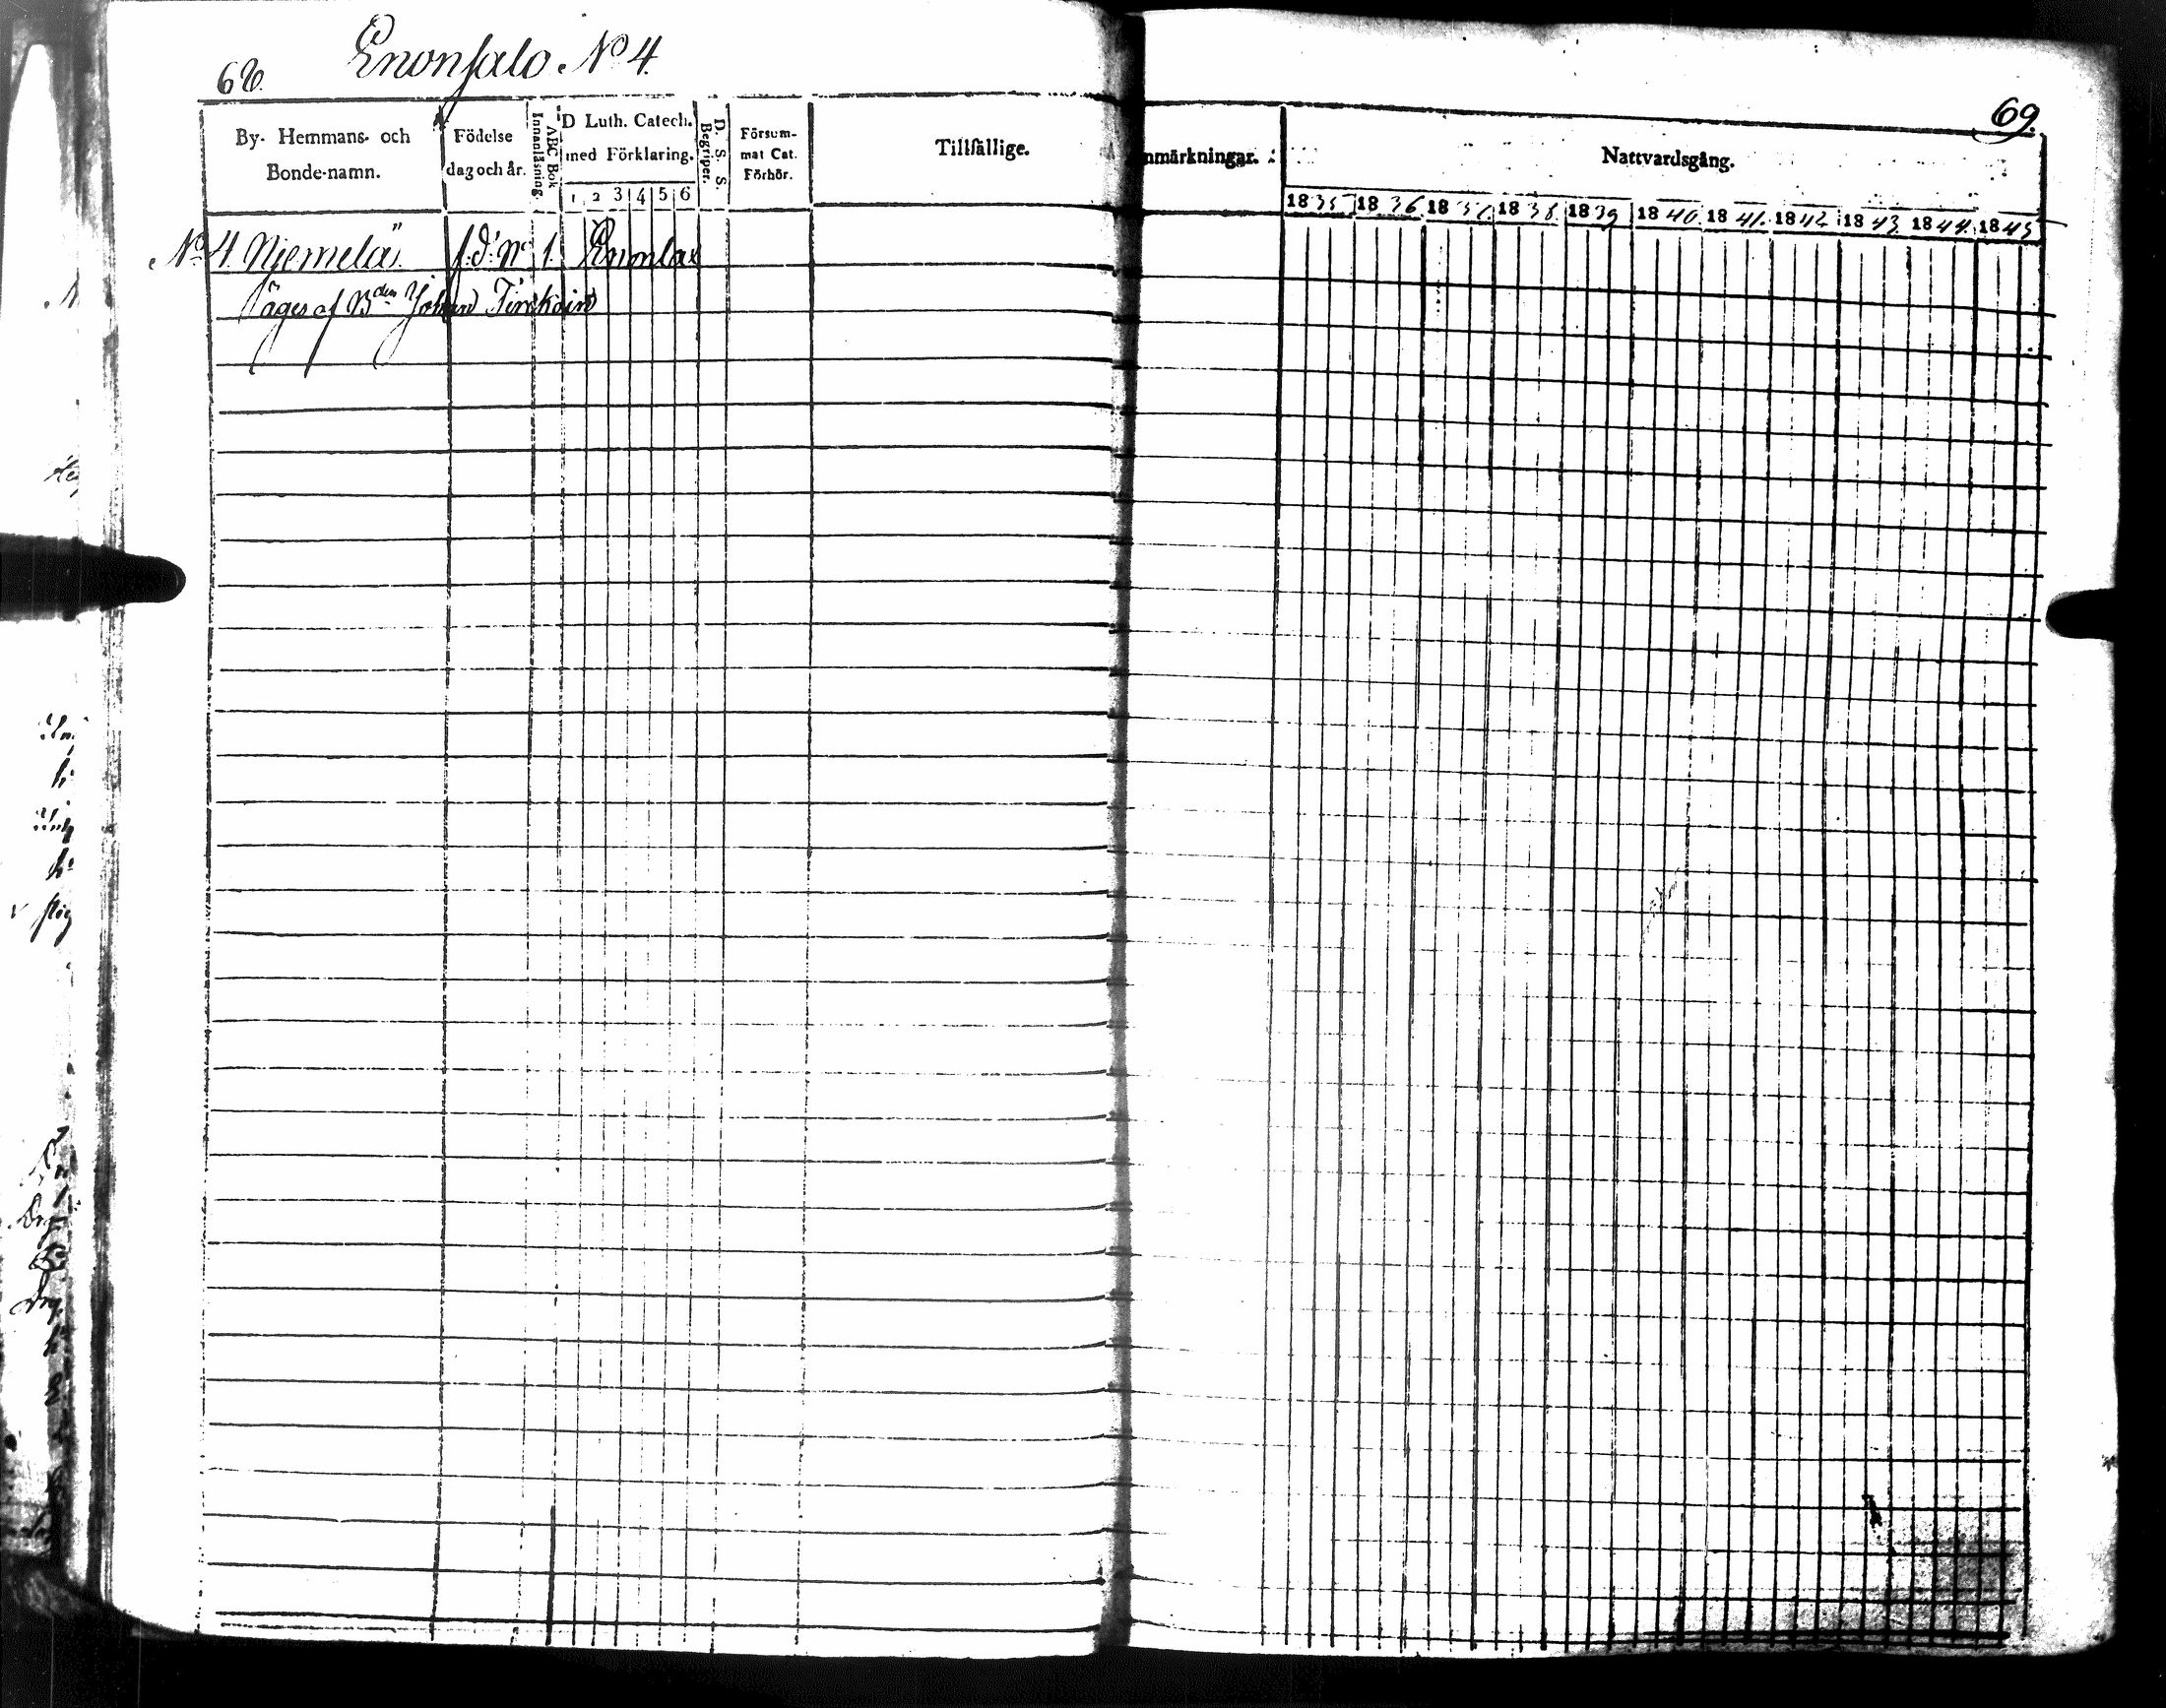 68.
Enonsalo No 4.
69.
By- Hemmans- och Bonde-namn.
Födelse dag och år.
Innanläsning.
ABC Bok
D Luth. Catech. med Förklaring.
1 2 3 4 5 6
Begriper.
D. S. S.
Försummat Cat. Förhör.
Tillfällige.
nmärkningar.
Nattvardsgång.
1835 1836 1837 1838 1839 1840 1841 1842 1843 1844 1845
No 4. Njemelä f.d. No 1. Enonlax
äges af Bden Johan